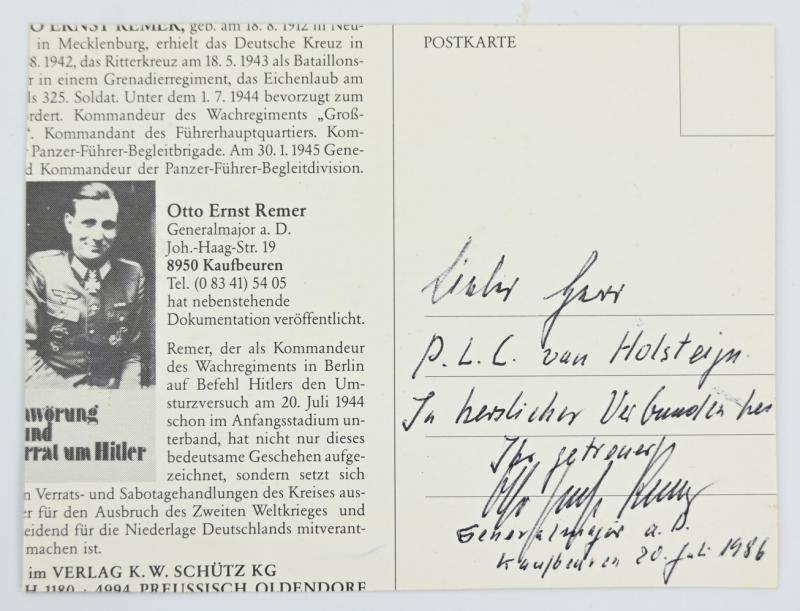 O ERNST REMER, geb. am 18. 8. 1912 in Neu-
in Mecklenburg, erhielt das Deutsche Kreuz in
8. 1942, das Ritterkreuz am 18. 5. 1943 als Bataillons-
r in einem Grenadierregiment, das Eichenlaub am
ls 325. Soldat. Unter dem 1. 7. 1944 bevorzugt zum
rdert. Kommandeur des Wachregiments „Groß-
“. Kommandant des Führerhauptquartiers. Kom-
Panzer-Führer-Begleitbrigade. Am 30. 1. 1945 Gene-
d Kommandeur der Panzer-Führer-Begleitdivision.
Otto Ernst Remer
Generalmajor a. D.
Joh.-Haag-Str. 19
8950 Kaufbeuren
Tel. (0 83 41) 54 05
hat nebenstehende
Dokumentation veröffentlicht.
Remer, der als Kommandeur
des Wachregiments in Berlin
auf Befehl Hitlers den Um-
sturzversuch am 20. Juli 1944
schon im Anfangsstadium un-
terband, hat nicht nur dieses
bedeutsame Geschehen aufge-
zeichnet, sondern setzt sich
n Verrats- und Sabotagehandlungen des Kreises aus-
er für den Ausbruch des Zweiten Weltkrieges und
eidend für die Niederlage Deutschlands mitverant-
machen ist.
im VERLAG K. W. SCHÜTZ KG
H 1180 · 4994 PREUSSISCH OLDENDORF
wörung
und
rrat um Hitler
POSTKARTE
Lieber Herr
P. L. C. van Holsteijn
In herzlicher Verbundenheit
Ihr getreuer
Otto Ernst Remer
Generalmajor a. D.
Kaufbeuren 20. Juli 1986